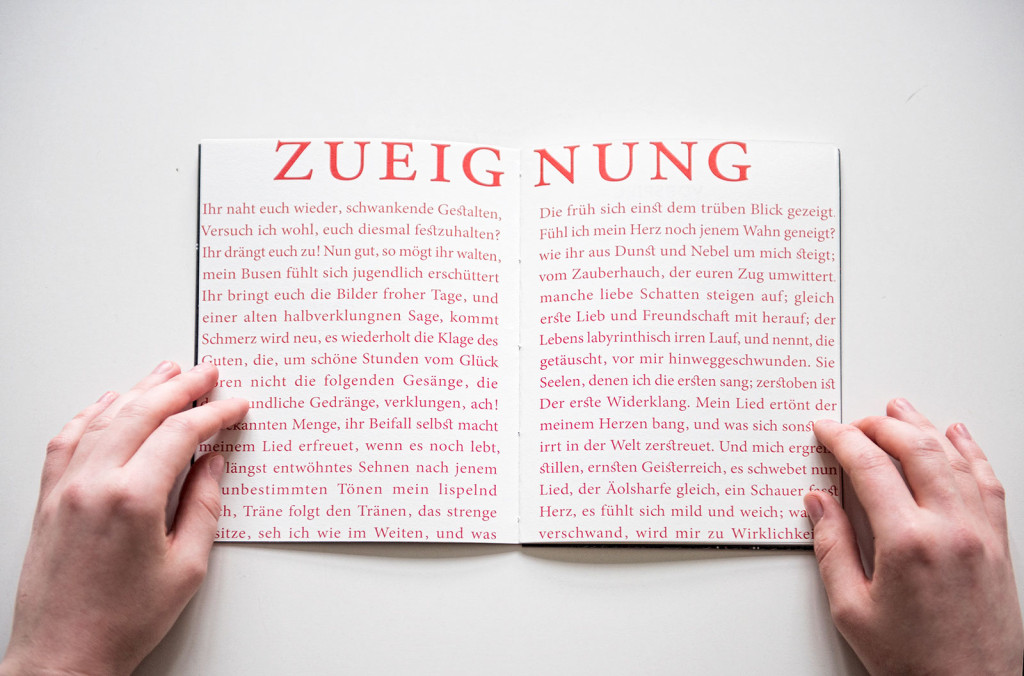 ZUEIGNUNG
Ihr naht euch wieder, schwankende Gestalten, Die früh sich einst dem trüben Blick gezeigt.
Versuch ich wohl, euch diesmal festzuhalten? Fühl ich mein Herz noch jenem Wahn geneigt?
Ihr drängt euch zu! Nun gut, so mögt ihr walten, wie ihr aus Dunst und Nebel um mich steigt;
mein Busen fühlt sich jugendlich erschüttert vom Zauberhauch, der euren Zug umwittert.
Ihr bringt euch die Bilder froher Tage, und manche liebe Schatten steigen auf; gleich
einer alten halbverklungnen Sage, kommt erste Lieb und Freundschaft mit herauf; der
Schmerz wird neu, es wiederholt die Klage des Lebens labyrinthisch irren Lauf, und nennt, die
Guten, die, um schöne Stunden vom Glück getäuscht, vor mir hinweggeschwunden. Sie
nicht die folgenden Gesänge, die Seelen, denen ich die ersten sang; zerstoben ist
Gedränge, verklungen, ach! Der erste Widerklang. Mein Lied ertönt der
Menge, ihr Beifall selbst macht meinem Herzen bang, und was sich
meinem Lied erfreuet, wenn es noch lebt, irrt in der Welt zerstreuet. Und mich
längst entwöhntes Sehnen nach jenem stillen, ernsten Geisterreich, es schwebet nun
unbestimmten Tönen mein lispelnd Lied, der Äolsharfe gleich, ein Schauer fasst
Träne folgt den Tränen, das strenge Herz, es fühlt sich mild und weich;
seh ich wie im Weiten, und was verschwand, wird mir zu